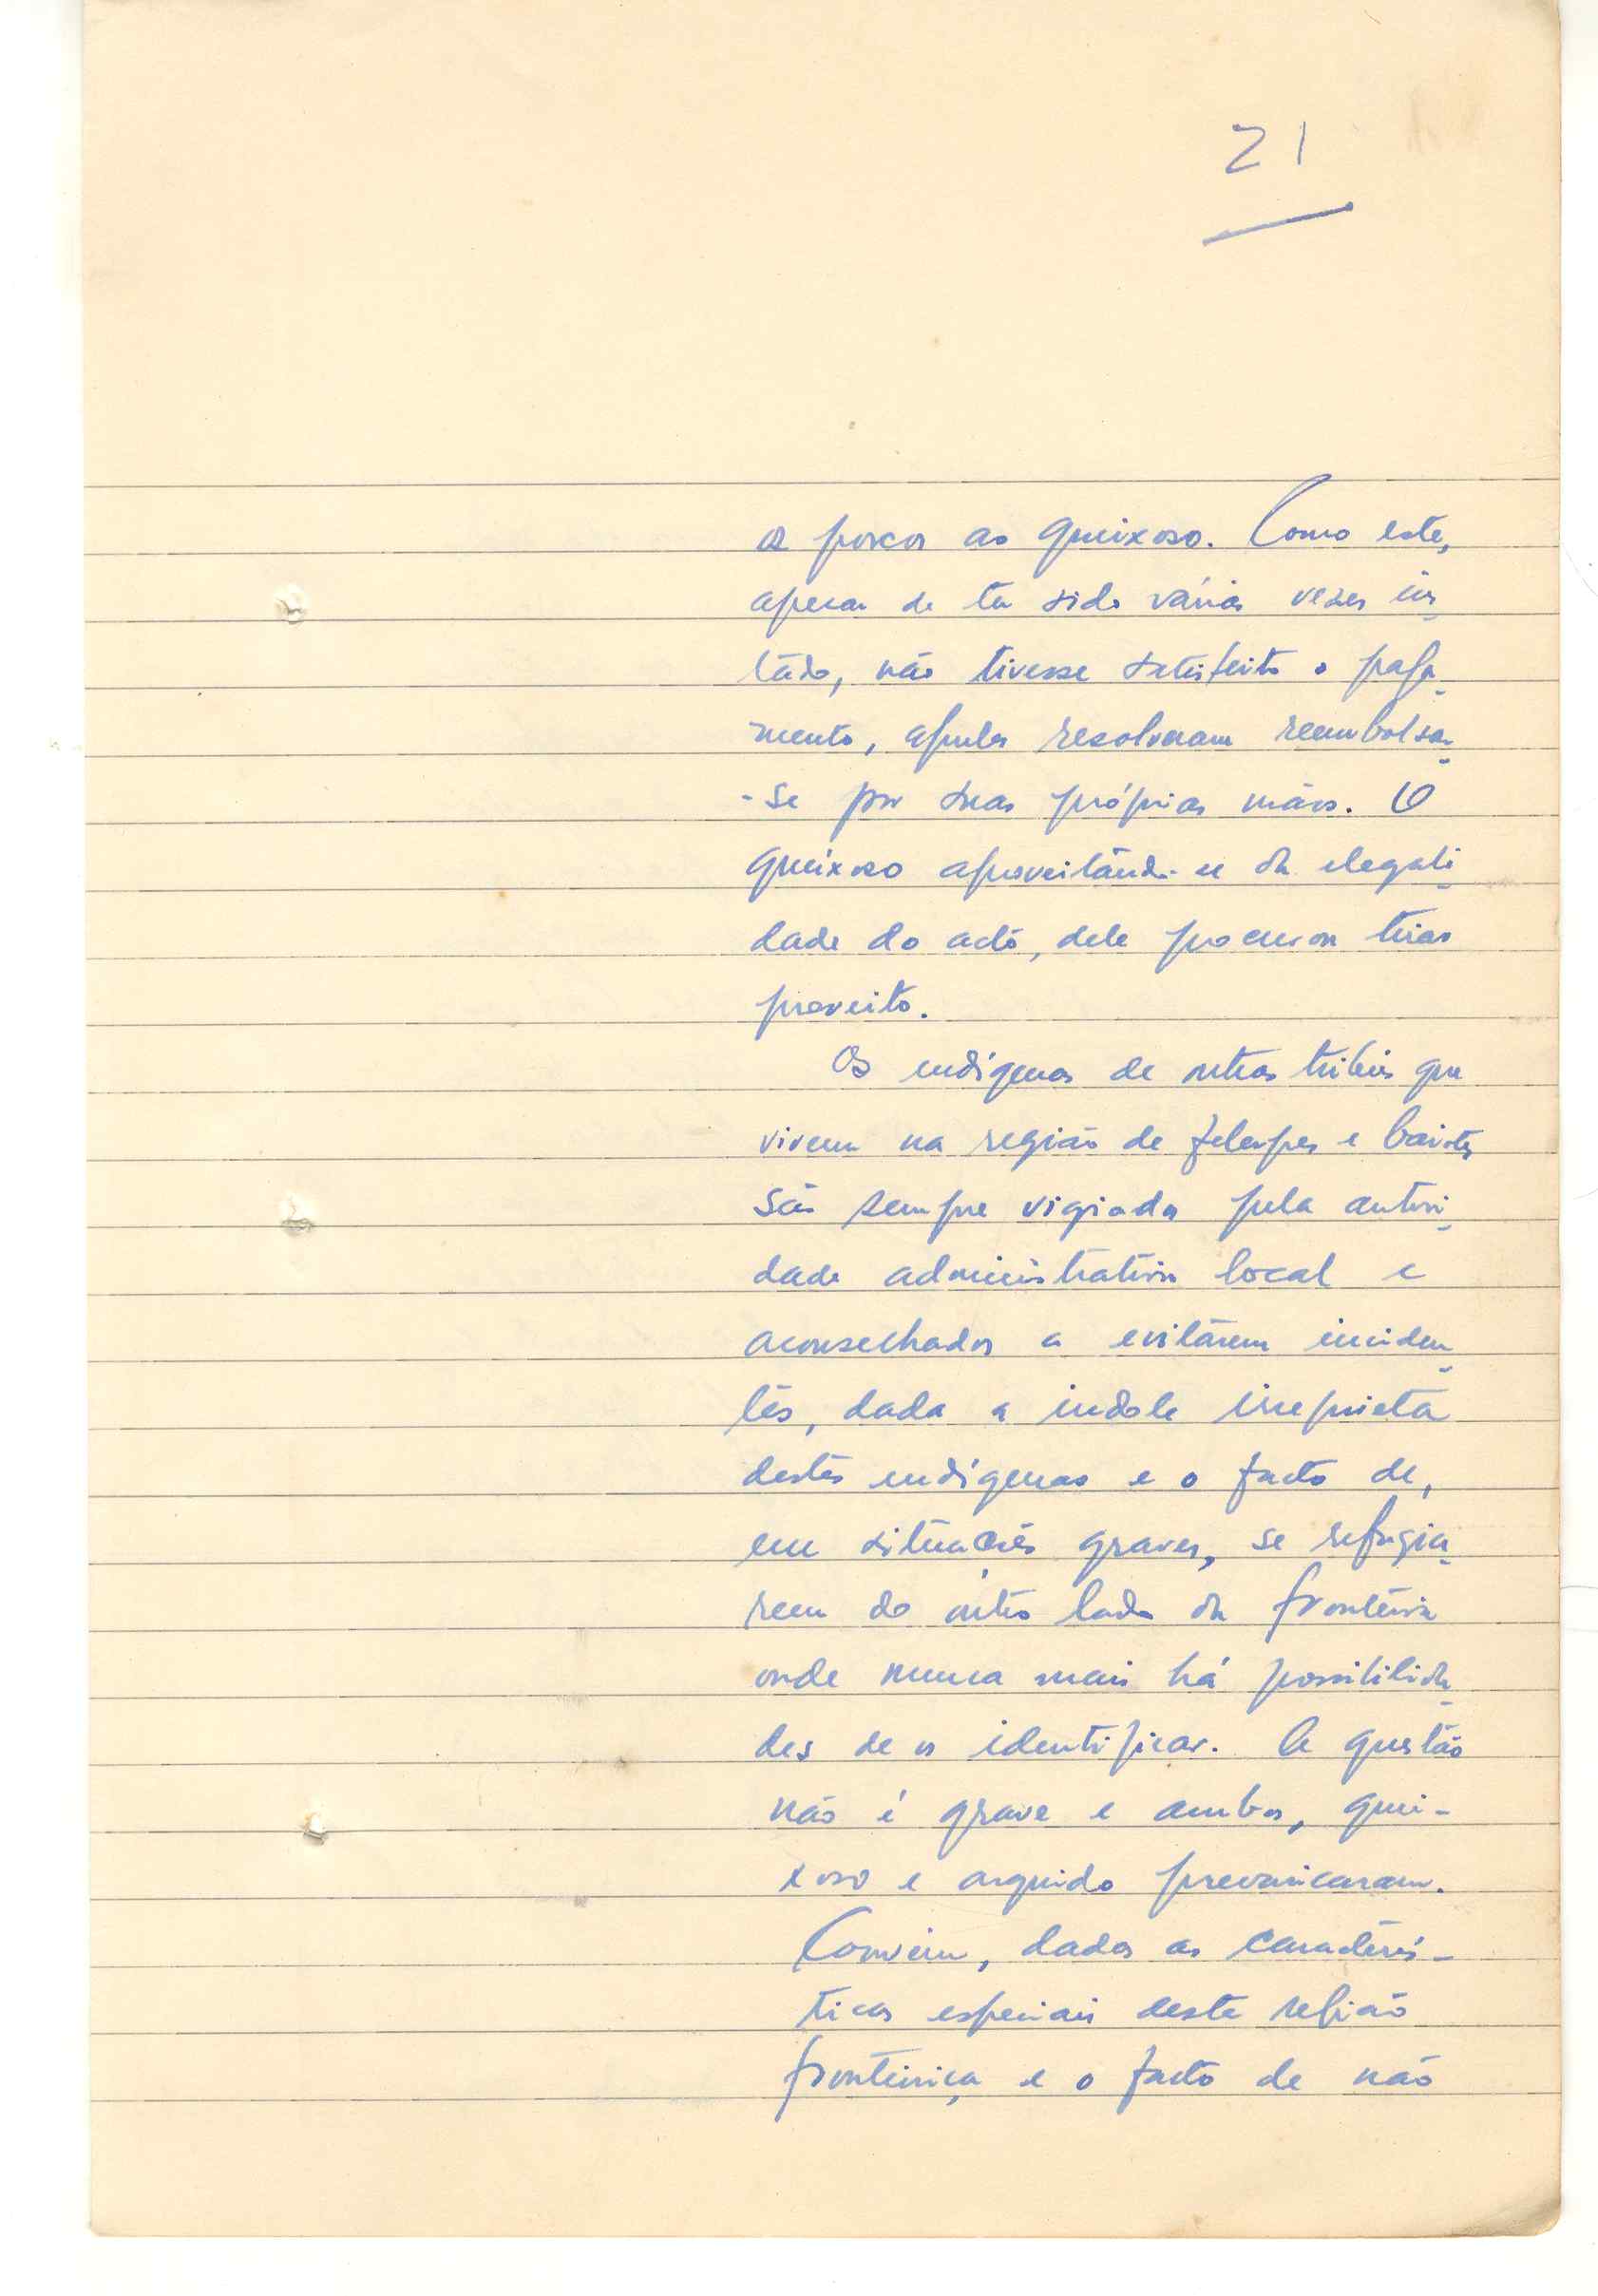 21
os porcos ao queixoso. Como este,
apesar de ter sido várias vezes ins-
tado, não tivesse satisfeito o paga-
mento, aqueles resolveram reembolsar-
-se por suas próprias mãos. O
queixoso aproveitando-se da ilegali-
dade do acto, dele procurou tirar
proveito.
Os indígenas de outras tribus que
vivem na região de felupes e baiotes
são sempre vigiados pela autori-
dade administrativa local e
aconselhados a evitarem inciden-
tes, dada a indole irrequieta
destes indígenas e o facto de,
em situações graves, se refugia-
rem do outro lado da fronteira
onde nunca mais há possibilida-
des de os identificar. A questão
não é grave e ambos, quei-
xoso e arguido prevaricaram.
Convém, dadas as caracterís-
ticas especiais desta região
fronteiriça e o facto de não